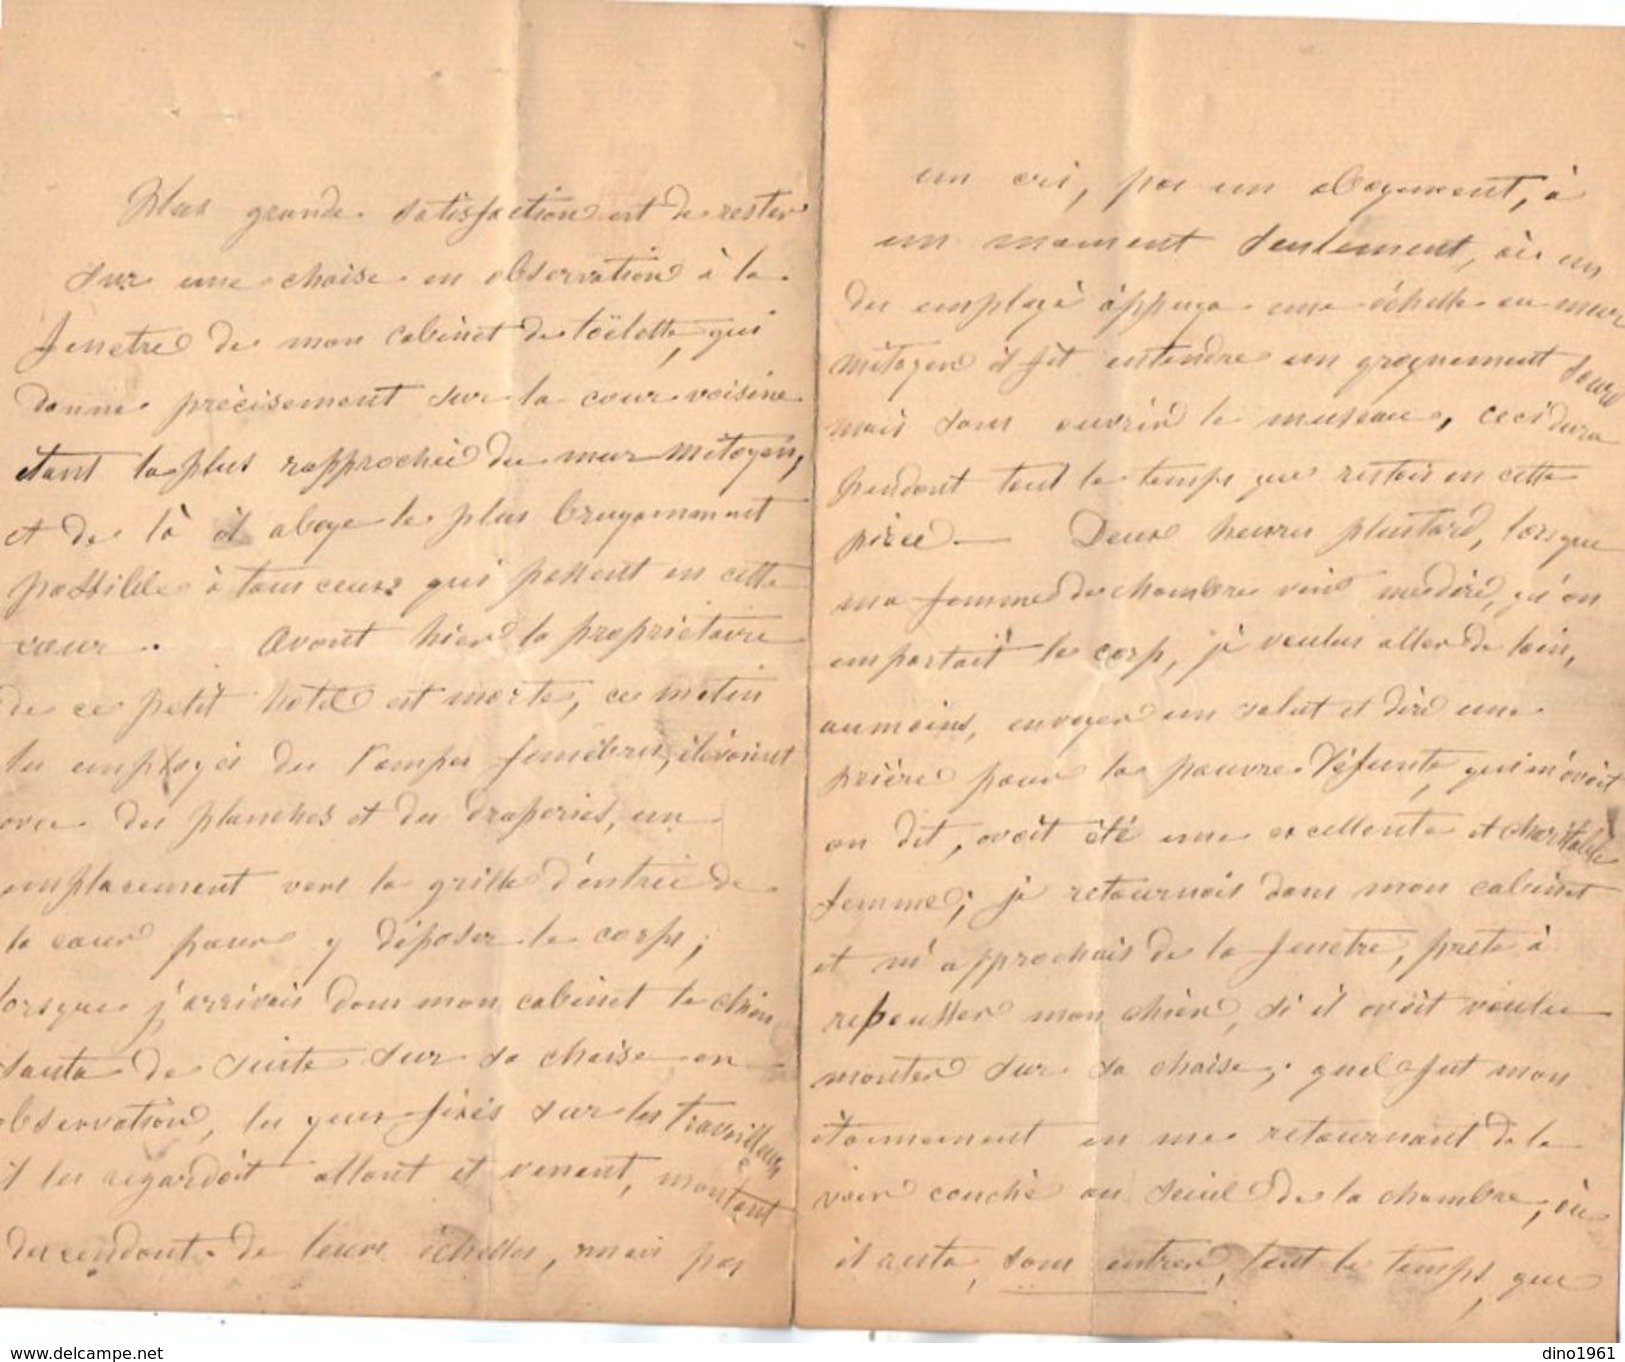 plus grande satisfaction est de rester
sur une chaise en observation à la
fenetre de mon cabinet de toëlette, qui
donne précisement sur la cour voisine
étant la plus rapprochée du mur mitoyen,
et de là il aboye le plus bruyamment
possible à tous ceux qui passent en cette
cour. Avant hier la propriétaire
de ce petit hotel est morte, ce matin
les employés des Pompes funébres, élévaient
avec des planches et des draperies, un
emplacement vers la grille d'entrée de
la cour pour y déposer le corps;
lorsque j'arrivais dans mon cabinet le chien
sauta de suite sur sa chaise en
observation, les yeux fixés sur les travailleurs
il les regardait allant et venant, montant
descendant de leurs échelles, mais pas
un cri, pas un aboyement, à
un moment seulement, où un
des employé appuya une échelle au mur
mitoyen il fit entendre un grognement sourd
mais sans ouvrir le museau, ceci dura
pendant tout le temps que restais en cette
pièce — Deux heures plustard, lorsque
ma femme de chambre vint me dire, qu'on
emportait le corp, je voulus aller de loin,
au moins, envoyer un salut et dire une
prière pour la pauvre défunte, qui m'avait
on dit, avait été une excellente et charitable
femme; je retournais dans mon cabinet
et m'approchais de la fenetre, prete à
repousser mon chien, si il avait voulu
monter sur sa chaise; quel fut mon
étonnement en me retournant de le
voir couché au seuil de la chambre, où
il resta, sans entrer, tout le temps, que
www.delcampe.net
dino1961